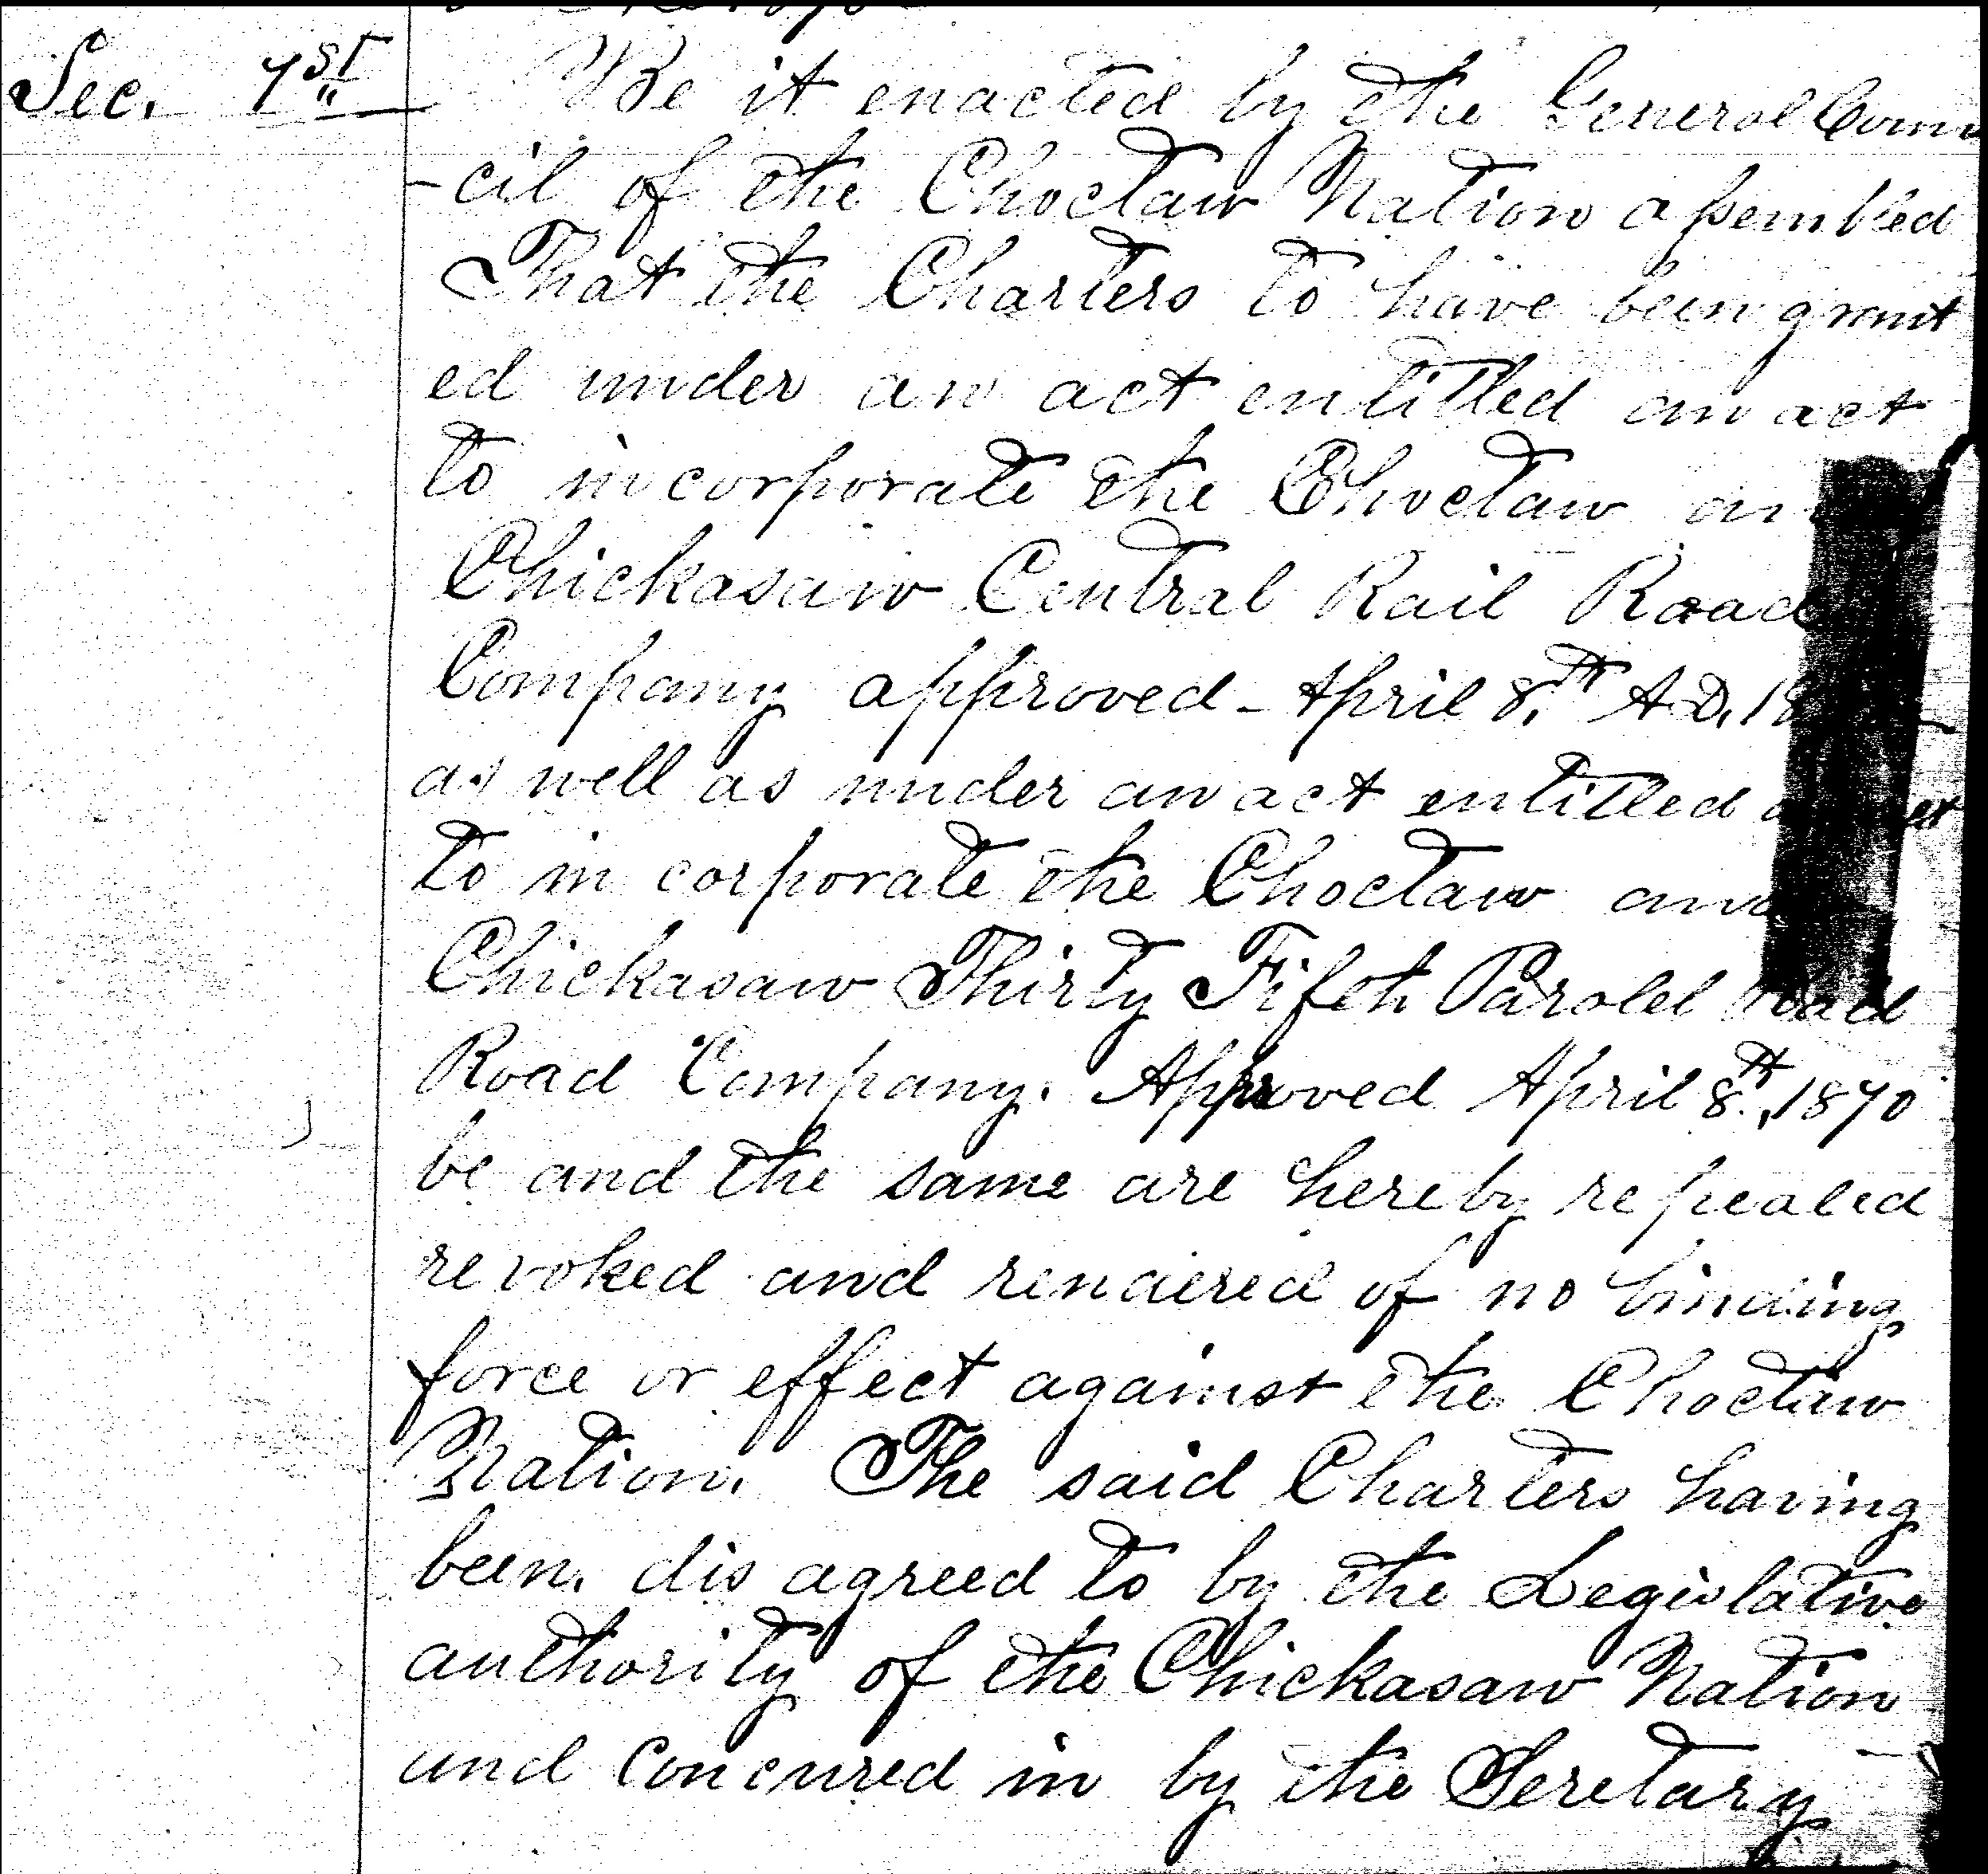 Sec. 1st Be it enacted by the General Coun
-cil of the Choctaw Nation assembled
That the Charters to have been grant
ed under an act entitled an act
to incorporate the Choctaw
Chickasaw Central Rail Road
Company approved - April 8th A.D. 18
as well as under an act entitled
to in corporate the Choctaw and
Chickasaw Thirty Fifth Parolel
Road Company. Approved April 8th, 1870
be and the same are hereby repealed
revoked and rendered of no binding
force or effect against the Choctaw
Nation. The said Charters having
been. dis agreed to by the Legislative
authority of the Chickasaw Nation
and Concured in by the Seretary